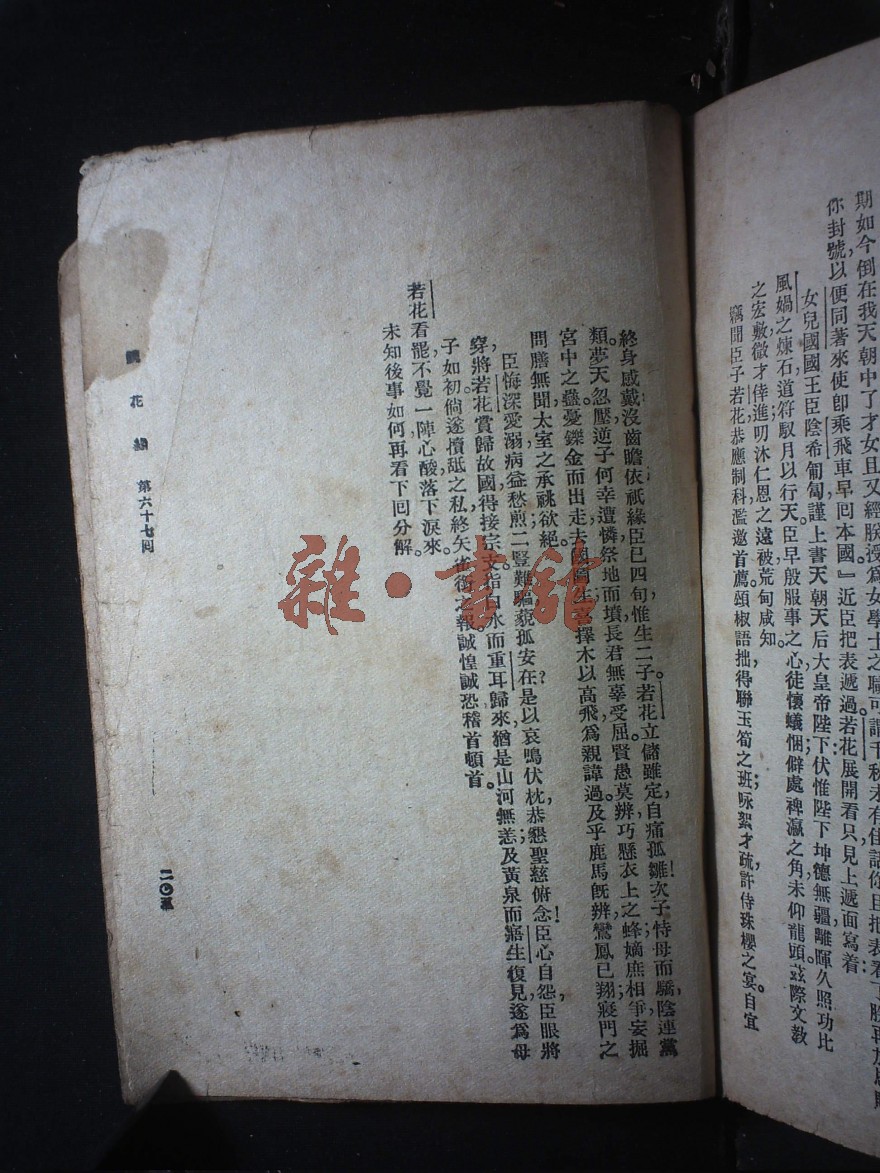 期如今倒在我天朝中了才女且又經朕授爲女學士之職可謂千秋未有佳話你且把表看了朕再加恩賜
你封號,以便同著來使卽乘飛車早回本國』近臣把表遞過若花展開看只見上遞面寫着
女兒國國王臣陰希匍匐謹上書天朝天后大皇帝陛下伏惟陛下坤德無疆離暉久照功比
風媧之煉石道符馭月以行天臣早殷服事之心徒懷蟻悃僻處裨瀛之角未仰龍頭茲際文敎
之宏敷微才倖進;叨沐仁恩之遠被荒甸咸知。
竊聞臣子若花恭應制科濫邀首薦頌椒語拙,得聯玉筍之班;咏絮才疏,許侍珠櫻之宴。自宜
終身感戴,沒齒瞻依。祇緣臣巳四旬,惟生二子。若花立儲雖定,自痛孤雛!次子恃母而驕,陰連黨
類。夢天忽壓,逆子何幸遭憐;祭地而墳,長君無辜受屈。賢愚莫辨,巧懸衣上之蜂;嫡庶相爭,妄掘
宮中之蠱。憂鑠金而出走,去國圖生;喜擇木以高飛,爲親諱過。及乎鹿馬旣辨,鸞鳳已翔。寢門之
問膳無聞,太室之承祧欲絕。
臣悔深愛溺,病益愁煎;二豎難驅,藐孤安在?是以哀鳴伏枕,恭懇聖慈俯念!臣心自怨,臣眼將
穿,將若花賞歸故國,得接宗支。指白水而重耳歸來,猶是山河無恙;及黃泉而寤生復見,遂爲母
子如初。倘遂攢舐之私,終矢雀銜之報。誠惶誠恐,稽首頓首。
若花看罷,不覺一陣心酸,落下淚來。
未知後事如何,再看下回分解。
鏡花緣 第六十七回
二〇五
雜·書館